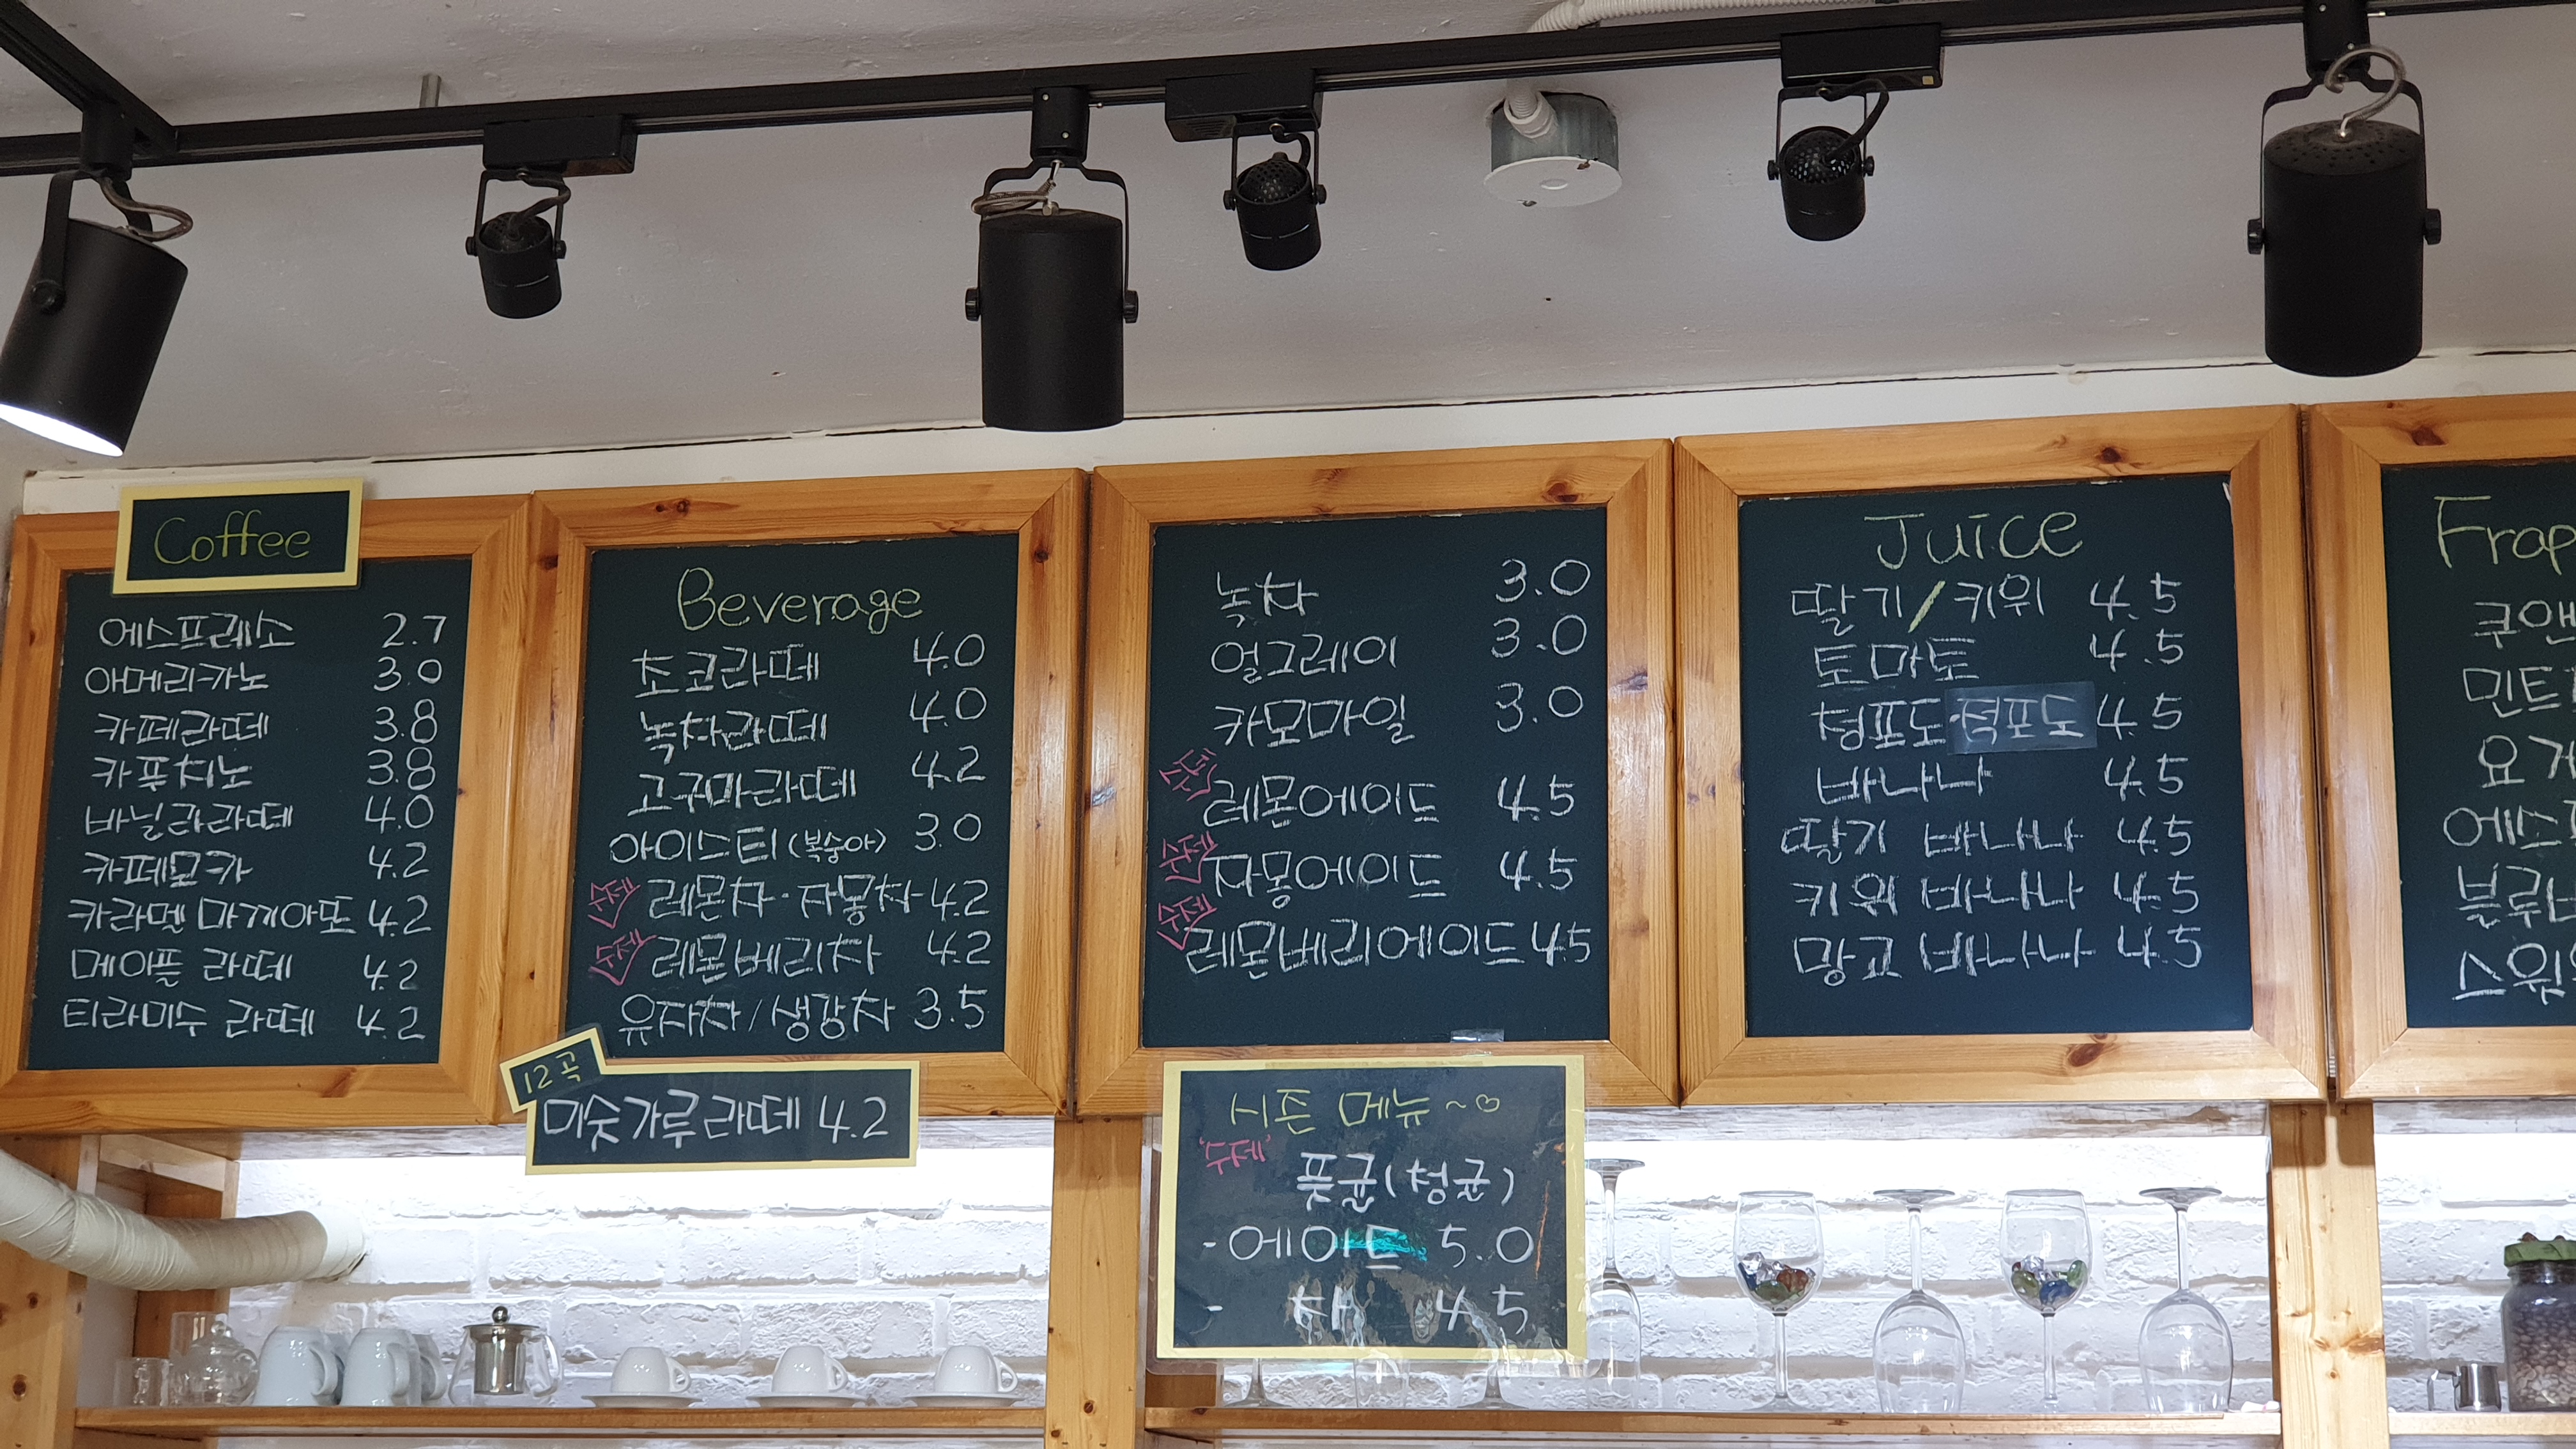 Coffee
에스프레소 2.7
아메리카노 3.0
카페라떼 3.8
카푸치노 3.8
바닐라라떼 4.0
카페모카 4.2
카라멜 마끼아또 4.2
메이플 라떼 4.2
티라미수 라떼 4.2
Beverage
초코라떼 4.0
녹차라떼 4.0
고구마라떼 4.2
아이스티 (복숭아) 3.0
수제 레몬차·자몽차 4.2
수제 레몬베리차 4.2
유자차/생강차 3.5
12곡
미숫가루라떼 4.2
녹차 3.0
얼그레이 3.0
카모마일 3.0
레몬에이드 4.5
수제 자몽에이드 4.5
수제 레몬베리에이드 4.5
시즌 메뉴~♡
'수제' 풋귤(청귤)
-에이드 5.0
- 차 4.5
Juice
딸기/키위 4.5
토마토 4.5
청포도·적포도 4.5
바나나 4.5
딸기 바나나 4.5
키위 바나나 4.5
망고 바나나 4.5
Frap
쿠앤
민트
요거
에스프
블루
스윗